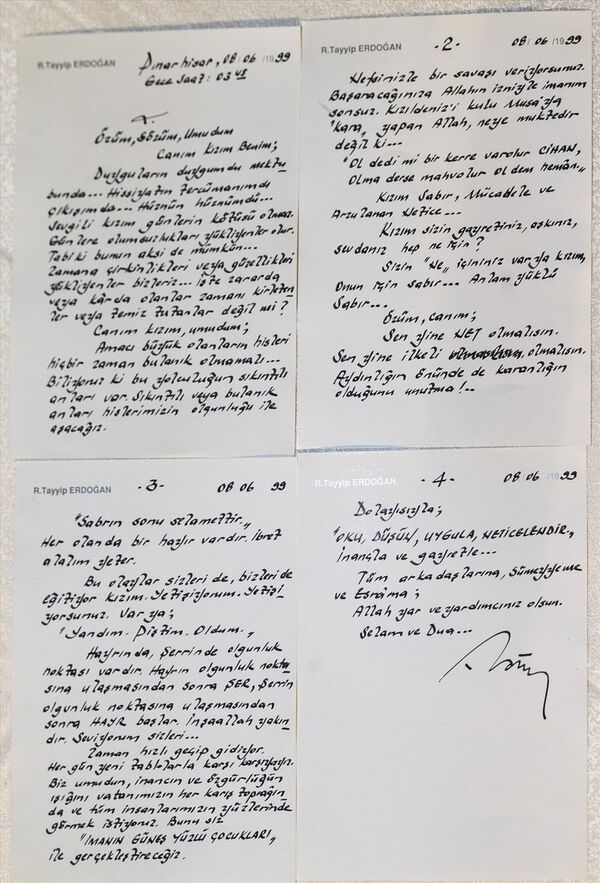 R.Tayyip ERDOĞAN
Pınarhisar, 08/06/1999
Gece Saat: 03 45
Özüm, Sözüm, Umudum
Canım Kızım Benim;
Duyguların duygumdu mektu-
bunda... Hissiyatın tercümanımdı
çıkışımda... Hüznün hüznümdü...
Sevgili kızım günlerin kötüsü olmaz.
Günlere olumsuzlukları yükleyenler olur.
Tabiki bunun aksi de mümkün...
Zamana çirkinlikleri veya güzellikleri
yükleyenler bizleriz... İşte zararda
veya kârda olanlar zamanı kirleten-
ler veya temiz tutanlar değil mi?
Canım kızım, umudum;
Amacı büyük olanların hisleri
hiçbir zaman bulanık olmamalı...
Biliyoruz ki bu yolculuğun sıkıntılı
anları var. Sıkıntılı veya bulanık
anları hislerimizin olgunluğu ile
aşacağız.
R.Tayyip ERDOĞAN
-2-
08/06/1999
Nefsinizle bir savaşı veriyorsunuz.
Başaracağınıza Allahın izniyle imanım
sonsuz. Kızıldeniz'i kulu Musa'ya
"kara" yapan Allah, neye muktedir
değil ki...
"Ol dedi mi bir kerre varolur CİHAN,
Olma derse mahvolur ol dem hemân.."
Kızım Sabır, Mücadele ve
Arzulanan Netice...
Kızım sizin gayretiniz, aşkınız,
sevdanız hep ne için?
Sizin "Ne" içininiz varya kızım,
Onun için sabır... Anlam yüklü
Sabır...
Özüm, canım;
Sen yine NET olmalısın.
Sen yine ilkeli olmalısın.
Aydınlığın önünde de karanlığın
olduğunu unutma!..
R.Tayyip ERDOĞAN
-3-
08 06 99
"Sabrın sonu selamettir.."
Her olanda bir hayır vardır. İbret
alalım yeter.
Bu olaylar sizleri de, bizleri de
eğitiyor kızım. Yetişiyorum. Yetişi-
yorsunuz. Varya;
"Yandım. Piştim. Oldum.."
Hayrında, Şerrinde olgunluk
noktası vardır. Hayrın olgunluk nokta-
sına ulaşmasından sonra ŞER, Şerrin
olgunluk noktasına ulaşmasından
sonra HAYR başlar. İnşaallah yakın-
dır. Seviyorum sizleri...
Zaman hızlı geçip gidiyor.
Her gün yeni tablolarla karşı karşıyayız.
Biz umudun, inancın ve özgürlüğün
ışığını vatanımızın her karış toprağın-
da ve tüm insanlarımızın yüzlerinde
görmek istiyoruz. Bunu siz
"İMANIN GÜNEŞ YÜZLÜ ÇOCUKLARI"
ile gerçekleştireceğiz.
R.Tayyip ERDOĞAN
-4-
08 06 1999
Dolayısıyla;
"OKU, DÜŞÜN, UYGULA, NETİCELENDİR..
İnançla ve gayretle...
Tüm arkadaşlarına, Sümeyyeme
ve Esrâma;
Allah yar ve yardımcınız olsun.
Selam ve Dua...